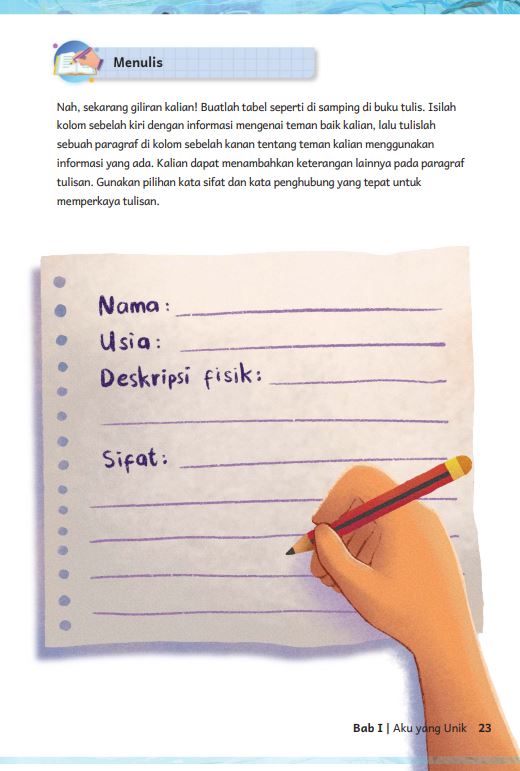 Menulis
Nah, sekarang giliran kalian! Buatlah tabel seperti di samping di buku tulis. Isilah
kolom sebelah kiri dengan informasi mengenai teman baik kalian, lalu tulislah
sebuah paragraf di kolom sebelah kanan tentang teman kalian menggunakan
informasi yang ada. Kalian dapat menambahkan keterangan lainnya pada paragraf
tulisan. Gunakan pilihan kata sifat dan kata penghubung yang tepat untuk
memperkaya tulisan.
Nama :
Usia :
Deskripsi fisik :
Sifat :
Bab I | Aku yang Unik 23